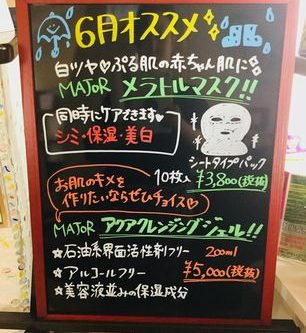 6月オススメ
白ツヤ♡ぷる肌の赤ちゃん肌に
MAJOR メラトルマスク!!
同時にケアできます♥
シミ・保湿・美白
シートタイプパック
10枚入 ¥3,800(税抜)
お肌のキメを
作りたいならぜひチョイス♡
MAJOR アクアクレンジングジェル!!
☆石油系界面活性剤フリー 200ml
☆アルコールフリー ¥5,000(税抜)
☆美容液並みの保湿成分